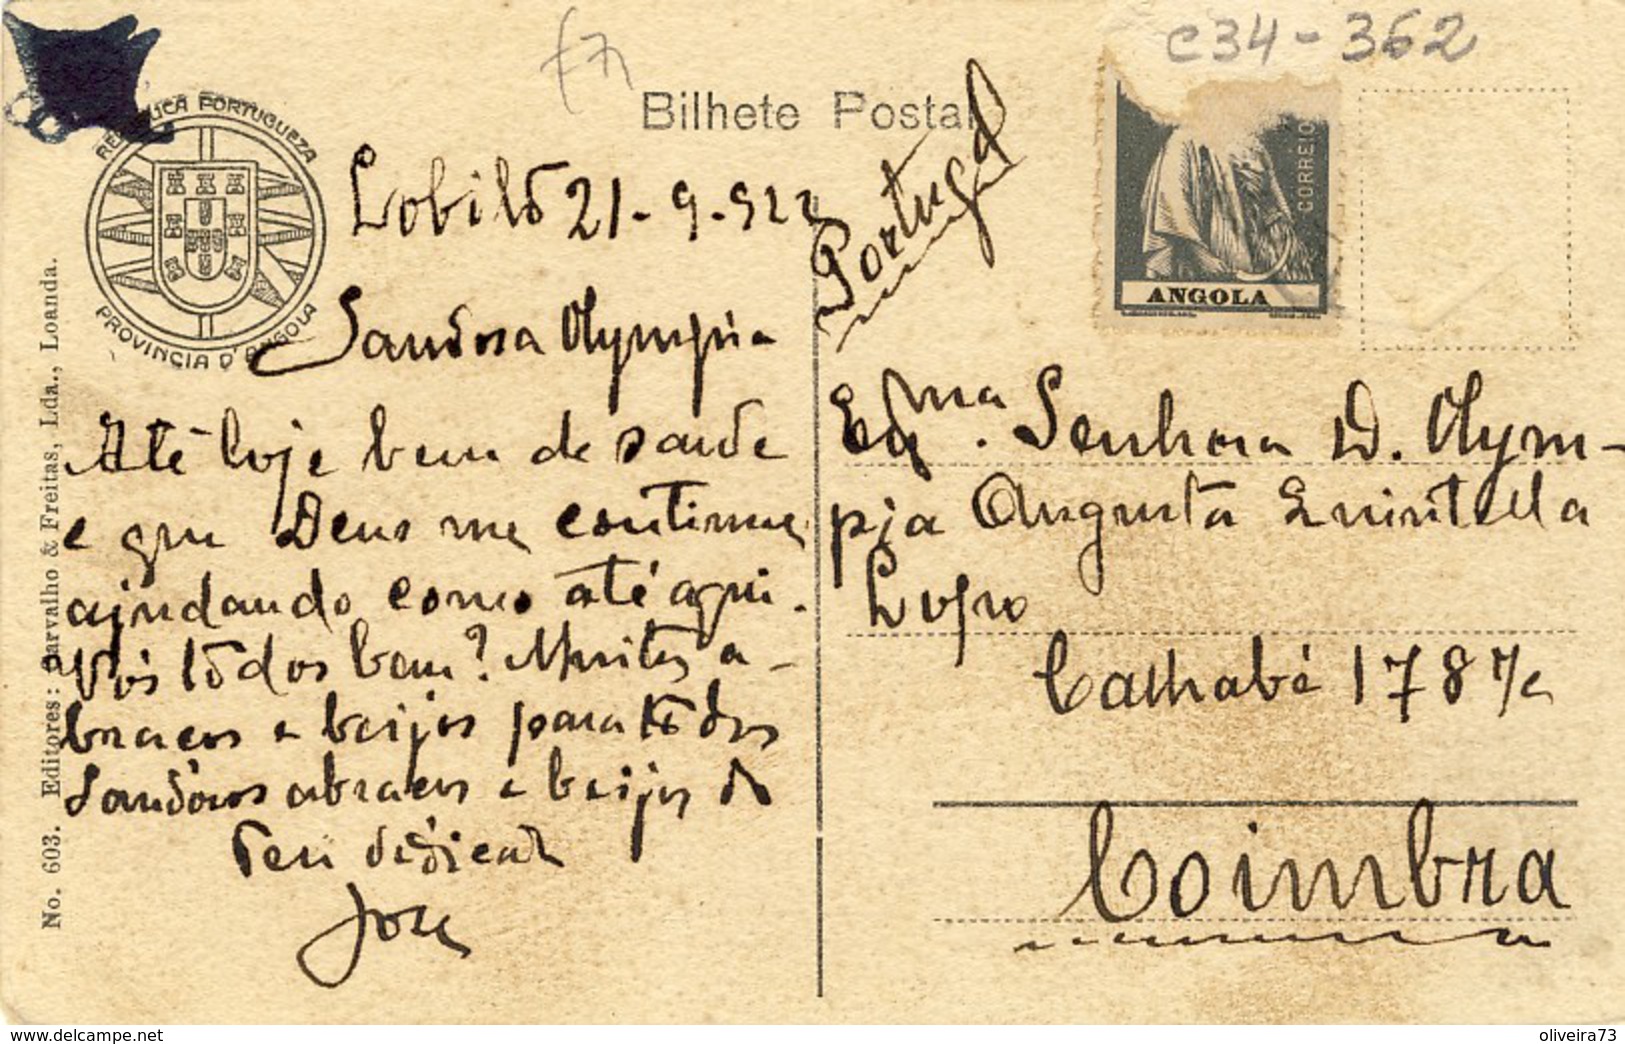 C34-362
Bilhete Postal
REPUBLICA PORTUGUEZA
PROVINCIA D'ANGOLA
No. 603. Editores: Carvalho & Freitas, Lda., Loanda.
CORREIO
ANGOLA
Lobito 21-9-922
Saudosa Olympia
Até hoje bem de saude
e que Deus me continue
ajudando como até aqui.
Vós todos bem? Muitos a-
braços e beijos para todos
Saudosos abraços e beijos do
teu dedicado
José
Portugal
Exma. Senhora D. Olym-
pia Augusta Quintella
Lopo
Calhabé 178
Coimbra
www.delcampe.net
oliveira73